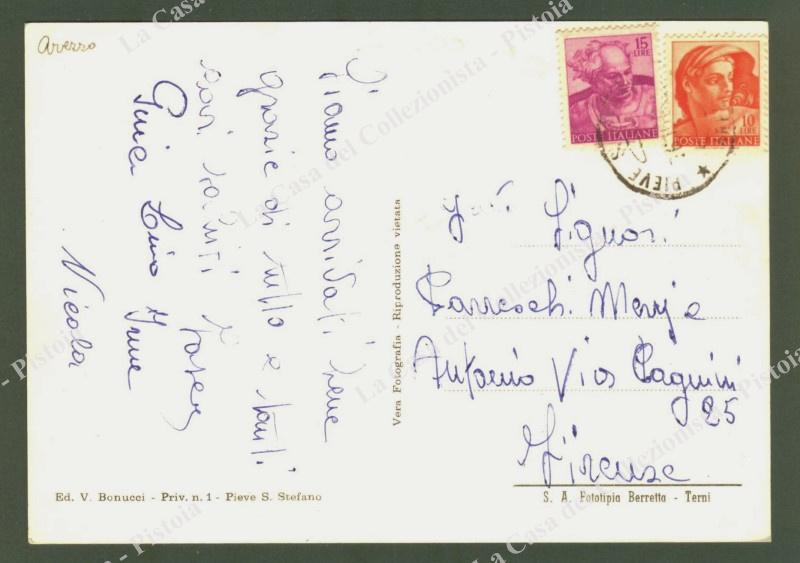 Arezzo
15
LIRE
POSTE ITALIANE
10
LIRE
POSTE ITALIANE
PIEVE S.
Siamo arrivati bene
grazie di tutto e tanti
cari saluti
Lina
Nicola
Vera Fotografia - Riproduzione vietata
Signori
Antonio Via Pagnini
25
Firenze
Ed. V. Bonucci - Priv. n. 1 - Pieve S. Stefano
S. A. Fototipia Berretta - Terni
La Casa del Collezionista - Pistoia